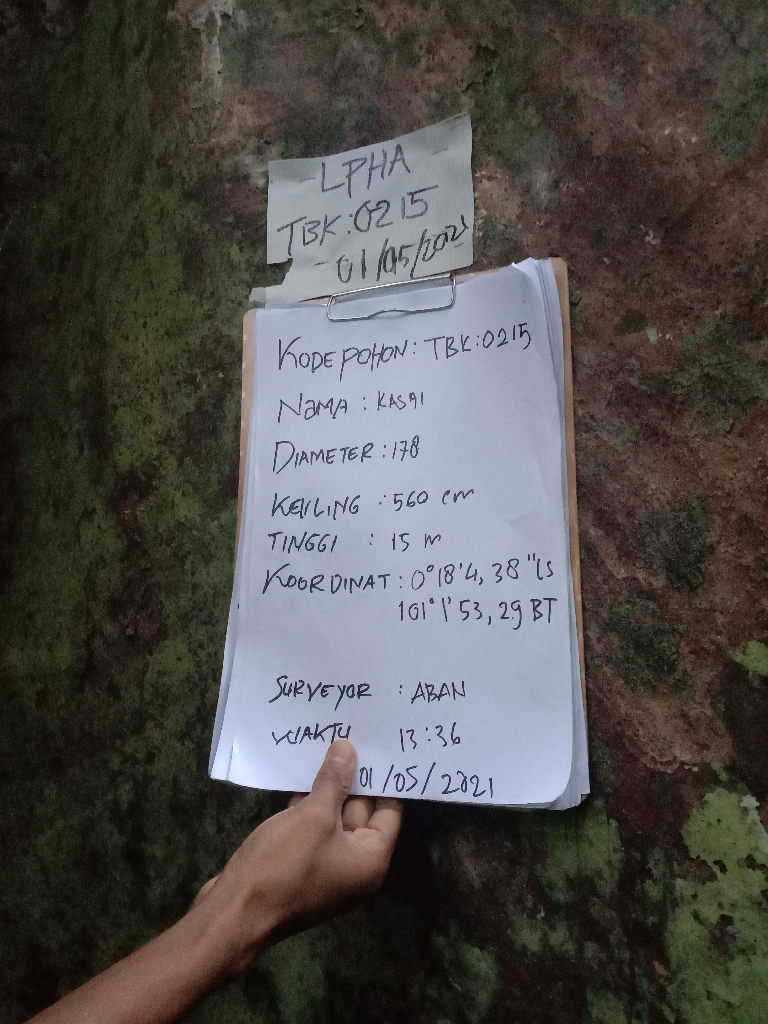 LPHA
TBK:0215
01/05/2021
KODE POHON : TBK:0215
NAMA : KASAI
DIAMETER : 178
KELILING : 560 cm
TINGGI : 15 m
KOORDINAT : 0°18'4,38"LS
101°1'53,29 BT
SURVEYOR : ABAN
WAKTU 13:36
01/05/2021